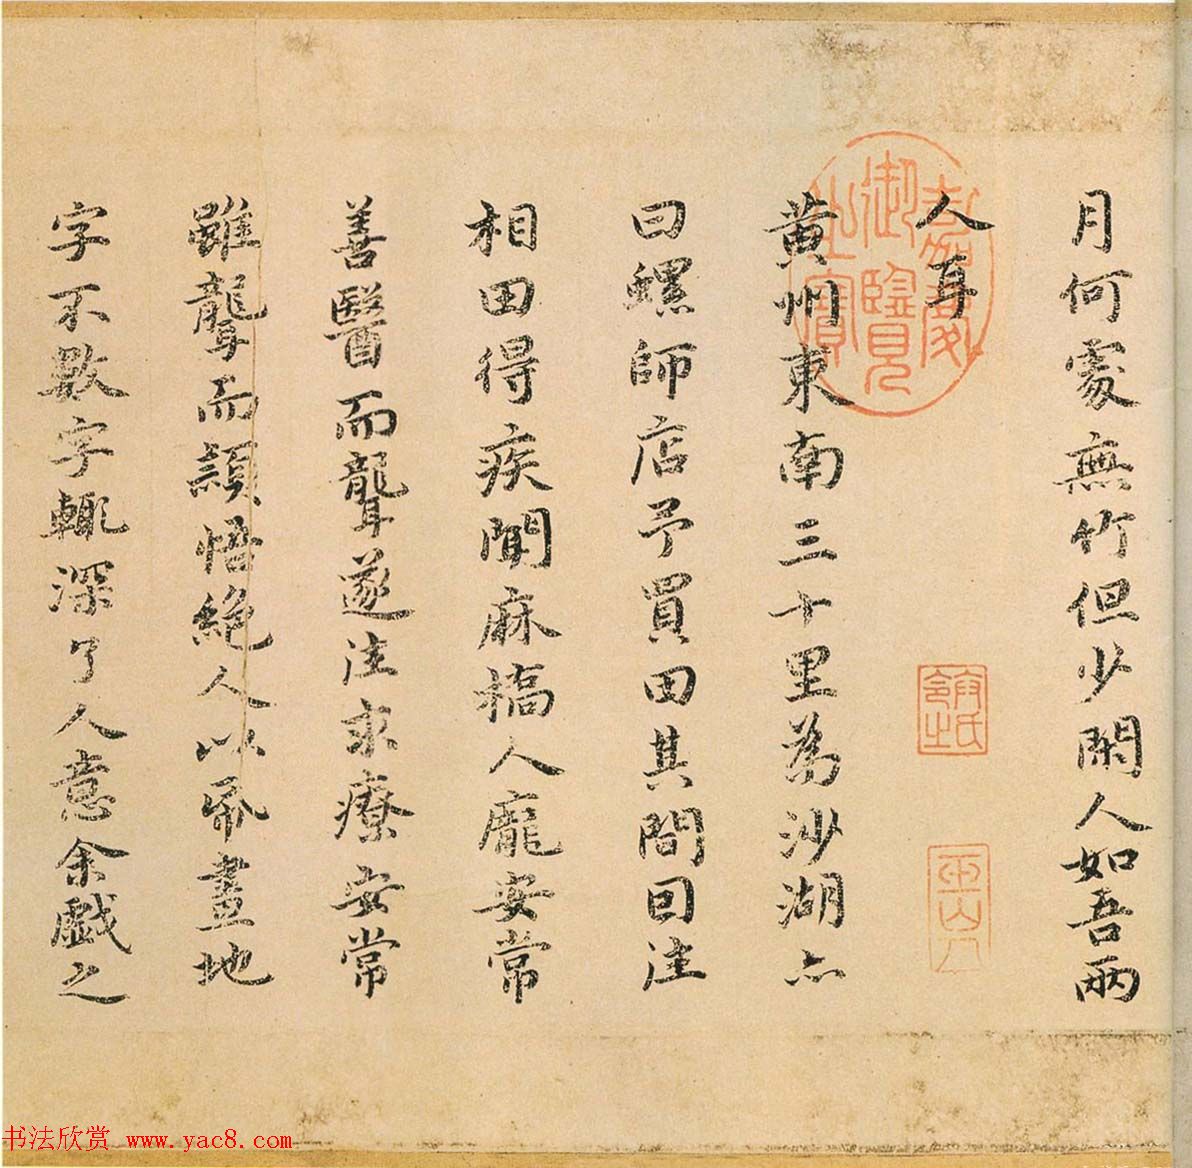 月何處無竹但少閑人如吾兩
人耳
黄州東南三十里爲沙湖亦
曰螺師店予買田其間因往
相田得疾聞麻橋人龐安常
善醫而聾遂往求療安常
雖聾而穎悟絶人以紙畫地
字不數字輒深了人意余戲之
嘉慶御覽之寶
书法欣赏 www.yac8.com